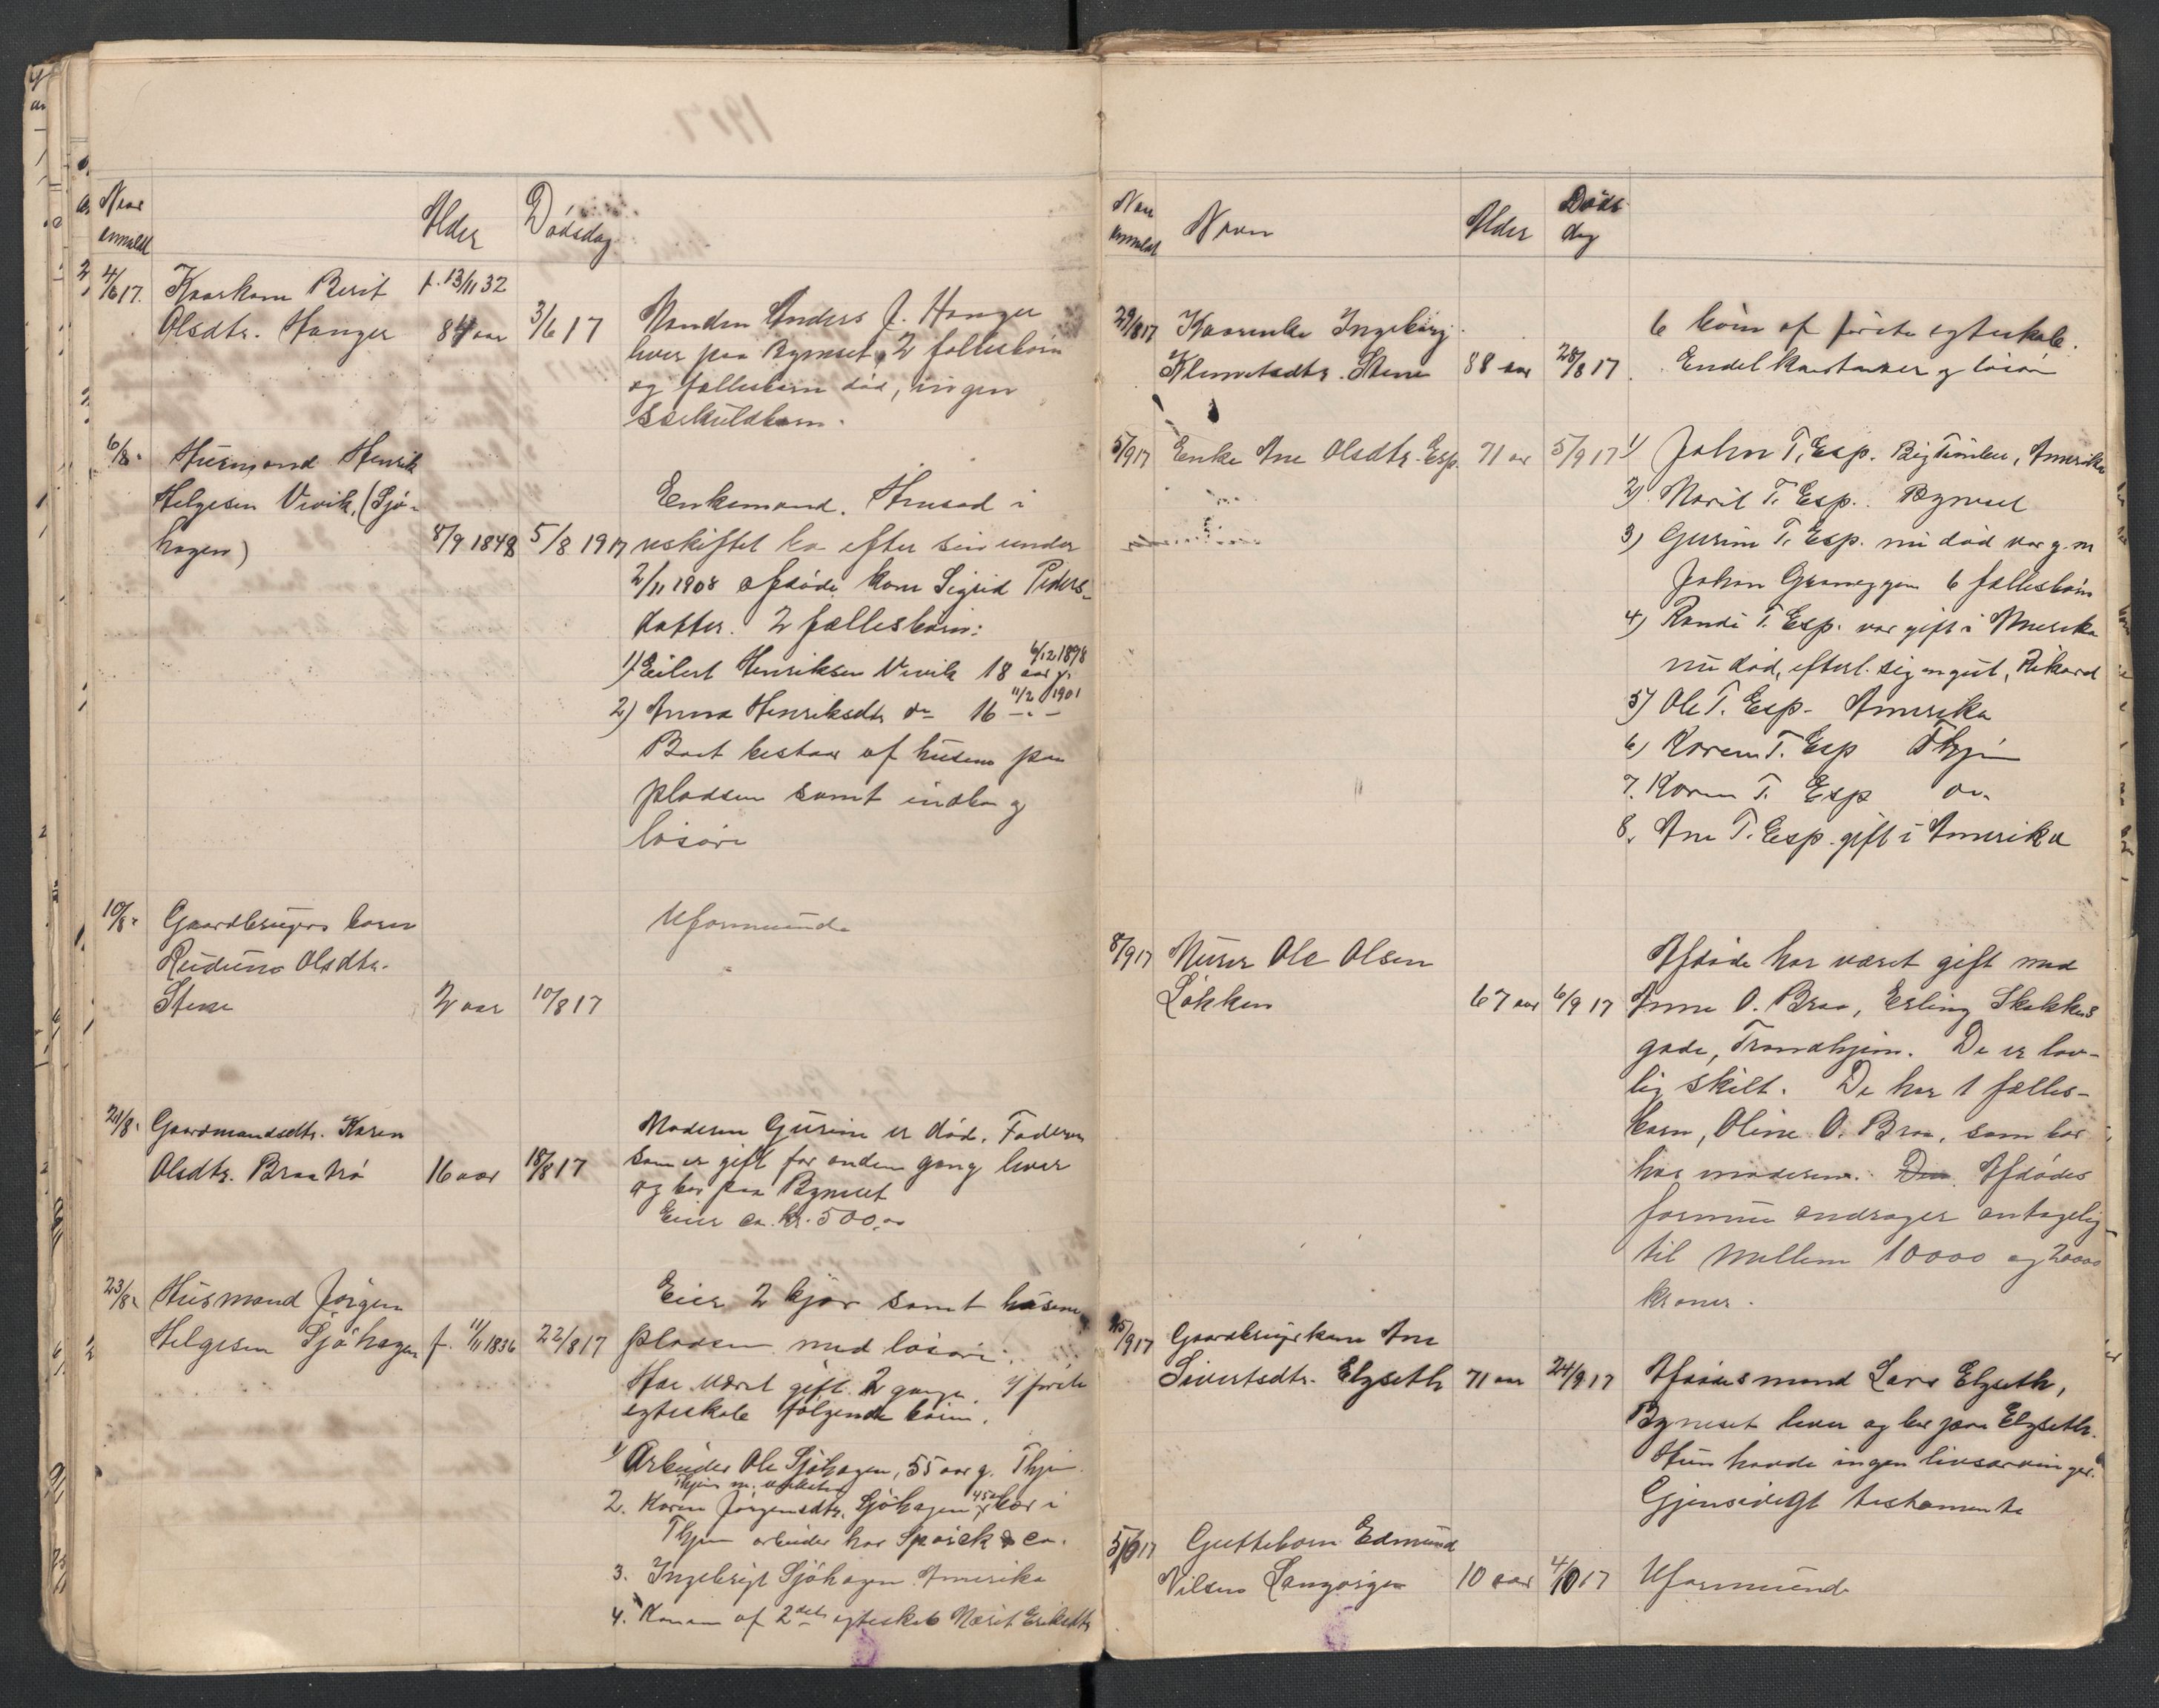 1917.
Naar
anmeldt
Alder
Dødsdag
4/6 17.
Kaarkone Berit
f. 13/11 32
Olsdtr. Hanger
84 aar
3/6 17
Manden Anders J. Hanger
lever paa Bynæset, 2 fællesbørn
og fællesbørn død, ingen
særkuldbørn.
6/8 "
Husmand Henrik
Helgesen Vivik, (Sjø-
hagen)
8/9 1848
5/8 1917
Enkemand. Hensad i
uskiftet bo efter sin under
2/11 1908 afdøde kone Sigrid Peders-
datter. 2 fællesbørn:
1) Eilert Henriksen Vivik 18 aar f. 6/12 1898
2) Anna Henriksdtr do 16 -"- 11/2 1901
Boet bestaar af husene paa
pladsen samt indbo og
løsøre
10/8 "
Gaardbrugers barn
Uformuende
Olsdtr.
Stene
2 aar
10/8 17
21/8 "
Gaardmandsdtr. Karen
Olsdtr. Braatrø
16 aar
18/8 17
Moderen Gurine er død. Faderen
som er gift for anden gang lever
og bor paa Bynæset
Eier ca. kr. 500,00
23/8 "
Husmand Jørgen
Helgesen Sjøhagen
f. 11/11 1836
22/8 17
Eier 2 kjør samt husene
pladsen med løsøre.
Har været gift 2 gange. I første
egteskab følgende børn.
1) Arbeider Ole Sjøhagen, 55 aar g. Thjem
Thjem m. arbeider
2. Karen Jørgensdtr. Sjøhagen 45 aar bor i
Thjem arbeider hos & co.
3. Ingebrigt Sjøhagen Amerika
4. Konen af 2det egteskab Marit Eriksdtr
Naar
anmeldt
Navn
Alder
Døds
dag
29/8 17
Kaarenke Ingeborg
Klemetsdtr. Stene
88 aar
28/8 17
6 børn af første egteskab.
Endel kontanter og løsøre
5/9 17
Enke Ane Olsdtr. Esp.
71 aar
5/9 17
1) John T. Esp. Big Timber, Amerika
2) Marit T. Esp. Bynæset
3) Gurine T. Esp. nu død var g. m
Johan 6 fællesbørn
4) Randi T. Esp. var gift i Amerika
nu død, efterl. sig en gut, Rikard
5) Ole T. Esp - Amerika
6) Karen T. Esp Thjem
7. Karen T. Esp do.
8. Ane T. Esp. gift i Amerika
8/9 17
Murer Ole Olsen
Løkken
67 aar
6/9 17
Afdøde har været gift med
Anne O. Braa, Erling Skakkes
gade, Trondhjem. De er lov-
lig skilt. De har 1 fælles-
barn, Oline O. Braa, som bor
hos moderen. Den Afdødes
formue andrager antagelig
til mellem 10000 og 20000
kroner.
25/9 17
Gaardbrugerkone Ane
Sivertsdtr. Elgseth
71 aar
24/9 17
Afdødes mand Lars Elgseth,
Bynæset lever og bor paa Elgseth.
Hun havde ingen livsarvinger.
Gjensidigt testamente
5/10 17
Guttebarn Edmund
Nilsen Langørgen
10 aar
4/10 17
Uformuende